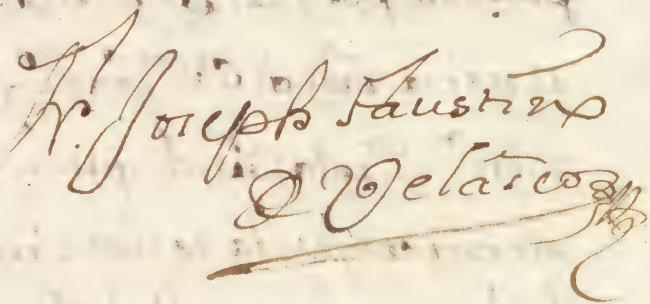 Fr. Joseph Faustino
D Velasco